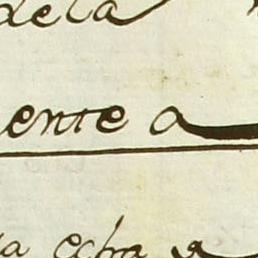 dela
ente a
la echa a